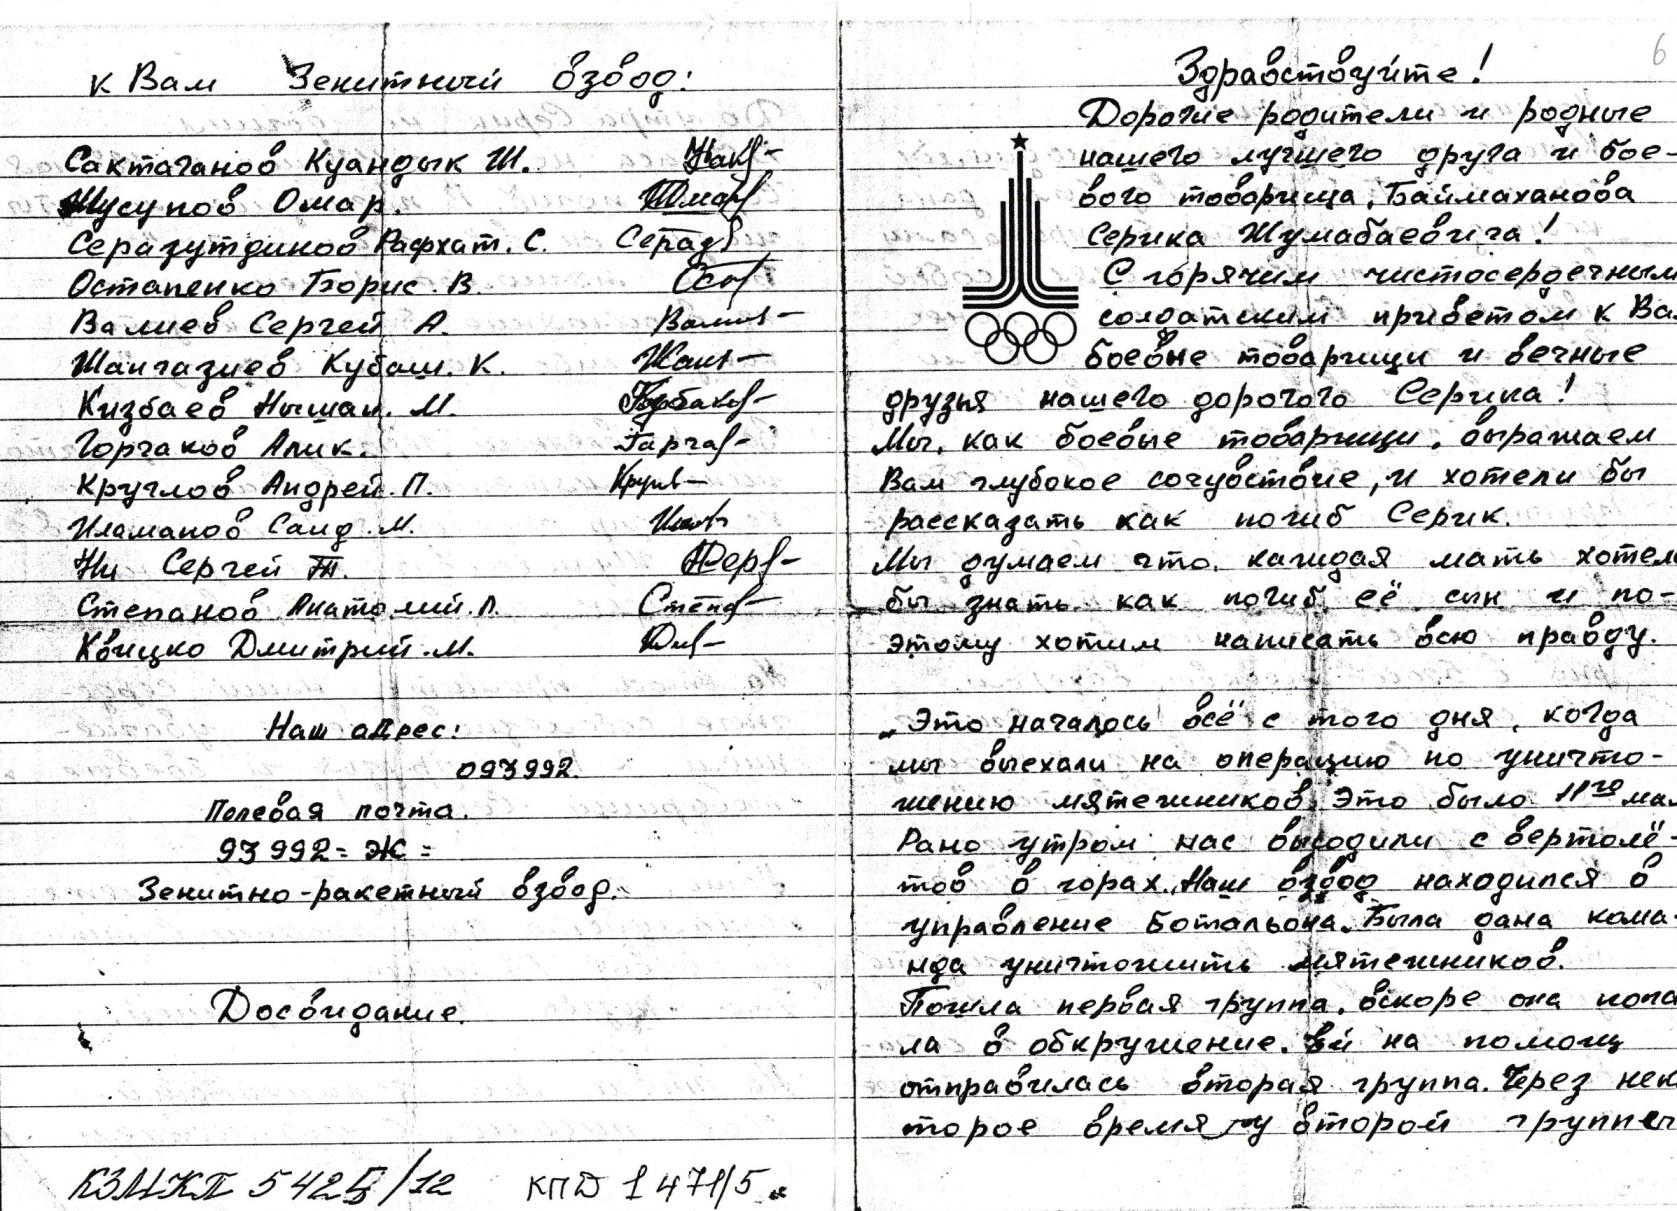 к Вам Зенитный взвод:
Сактаганов Куандык Ш.
Жусупов Омар.
Серазутдинов Рафхат. С. Сераз
Остапенко Борис. В. Ост
Валиев Сергей А. Валив
Шангазиев Кубаш. К. Шанг
Кизбаев Нышан. М.
Горчаков Алик. Гарча
Круглов Андрей. П. Кругл
Иламанов Саид. М.
Ни Сергей Т.
Степанов Анатолий. А. Степ
Квицко Дмитрий. М.
Наш адрес:
093992.
Полевая почта.
93992 = Ж =
Зенитно-ракетный взвод.
Досвидание.
КЗМКП 5425/12 КПД 1471/5
6
Здравствуйте!
Дорогие родители и родные
нашего лучшего друга и бое-
вого товарища, Баймаханова
Серика Жумабаевича!
С горячим чистосердечным
солдатским приветом к Ва
боевые товарищи и вечные
друзья нашего дорогого Серика!
Мы, как боевые товарищи, выражаем
Вам глубокое сочувствие, и хотели бы
рассказать как погиб Серик.
Мы думаем что, каждая мать хотел
бы знать как погиб её сын и по-
этому хотим написать всю правду.
„Это началось всё" с того дня, когда
мы выехали на операцию по уничто-
жению мятежников. Это было 11го мая
Рано утром нас высодили с вертолё-
тов в горах. Наш взвод находился в
управление Ботальона. Была дана кома-
нда уничтожить мятежников.
Пошла первая группа, вскоре она попа
ла в обкружение. Ей на помощ
отправилась вторая группа. Через нек
торое время у второй группы